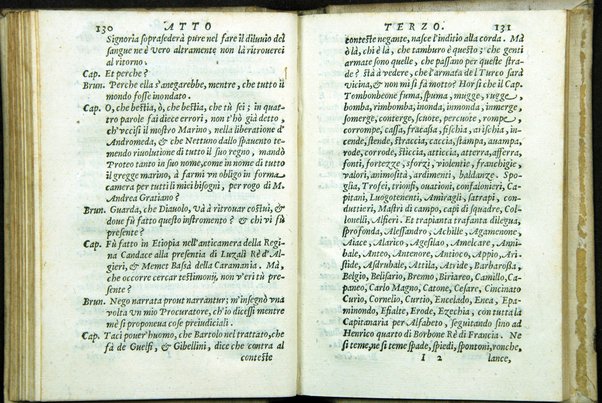 130 ATTO
Signoria soprasederà pure nel fare il diluuio del
sangue ne è vero altramente non là ritrouerei
al ritorno.
Cap. Et perche?
Brun. Perche ella s'anegarebbe, mentre, che tutto il
mondo fosse inondato.
Cap. O, che bestia, ò, che bestia, che tù sei; in quat-
tro parole fai diece errori, non t'hò già detto,
ch'vccisi il mostro Marino, nella liberatione d'
Andromeda, & che Nettuno dallo spauento te-
mendo riuolutione di tutto il suo regno, mandò
Proteo tanto in suo nome, come in nome di tutto
il gregge marino, à farmi vn obligo in forma
camera per tutti i miei bisogni, per rogo di M.
Andrea Graiano?
Brun. Guarda, che Diauolo, và à ritrouar costùi, &
doue fù fatto questo instromento? & chi vi sù
presente?
Cap. Fù fatto in Etiopia nell'anticamera della Regi
na Candace alla presentia di Luzali Rè d'Al-
gieri, & Memet Bassà della Caramania. Mà,
che occorre cercar testimonij, non v'eri tù pre-
sente?
Brun. Nego narrata prout narrantur; m'insegnò vna
volta vn mio Procuratore, ch'io dicessi mentre
mè si proponeua cose preiudiciali.
Cap. Taci pouer'huomo, che Bartolo nel trattato, che
fà de Guelfi, & Gibellini, dice che contra al
conteste
TERZO. 131
conteste negante, nasce l'inditio alla corda. Ma
ò là, chi è là, che tamburo è questo; che genti
armate sono quelle, che passano per queste stra-
de? Stà à vedere, che l'armata del Turco sarà
vicina, & non mi si fà motto? Horsì che il Cap.
Tombonbeone fuma, spuma, mugge, rugge,
bomba, rimbomba, inonda, immonda, immerge,
somerge, contergo, scuote, percuote, rompe,
corrompe, cassa, fracassa, fischia, arischia, in-
cende, stende, straccia, caccia, stampa, auampa,
rode, corrode, sticcia, atticcia, atterra, afferra,
fonti, fortezze, sforzi, violentie, franchigie,
valori, animosità, ardimenti, baldanze. Spo-
glia, Trofei, trionfi, ouationi, confalonieri, Ca-
pitani, Luogotenenti, Amiragli, satrapi, con-
duttieri, Mastri di campo, capi di squadre, Col-
lonelli, Alfieri. Et trapianta trafanta dilegua,
sprofonda, Alessandro, Achille, Agamenone,
Aiace, Alarico, Agesilao, Amelcare, Anni-
bale, Anteo, Antenore, Antioco, Appio, Ari-
stide, Asdrubale, Attila, Astride, Barbarossa,
Belgio, Belisario, Bremo, Biriareo, Camillo, Ca-
paneo, Carlo Magno, Catone, Cesare, Cincinato
Curio, Cornelio, Curtio, Encelado, Enea, Epa-
minondo, Efialte, Erode, Ezechia, con tutta là
Capitanaria per Alfabeto, seguitando sino ad
Henrico quarto di Borbone Rè di Francia. Ne
si teme, ne si teme spade, spiedi, spontoni, ronche,
I 2 lance,